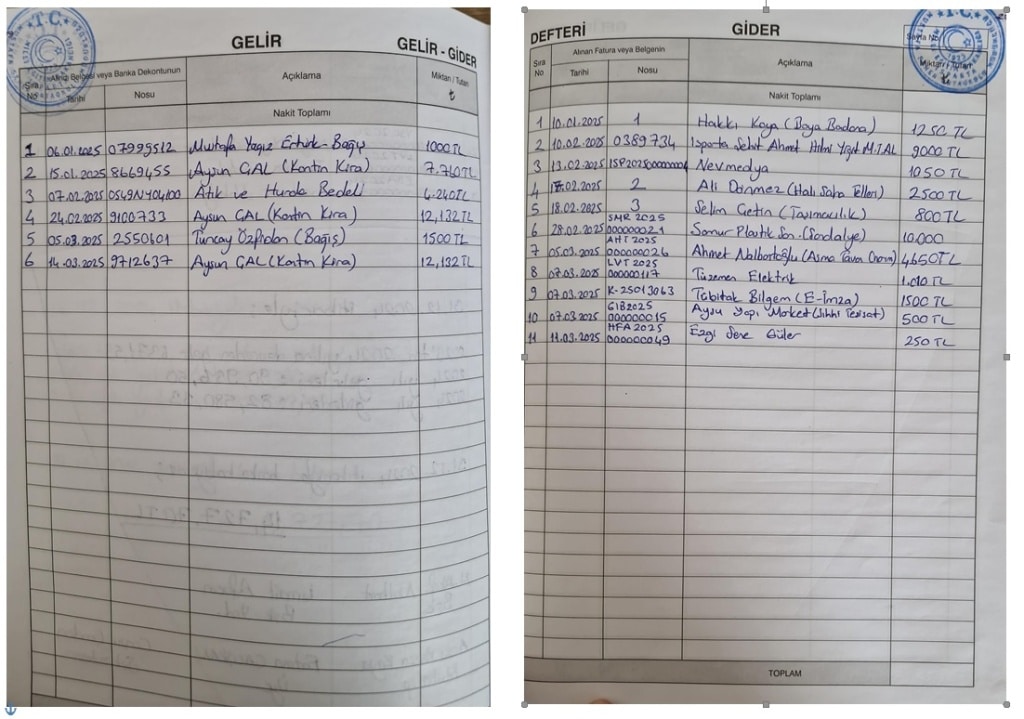 GELİR
GELİR - GİDER
Sıra No
Alındı Belgesi veya Banka Dekontunun
Tarihi
Nosu
Açıklama
Miktarı / Tutarı
₺
Nakit Toplamı
1 06.01.2025 07999512 Mustafa Yağız Ertürk-Bağış 1000 TL
2 15.01.2025 8669455 Aysun GAL (Kantin Kira) 7.740TL
3 07.02.2025 0549NY04100 Atık ve Hurda Bedeli 6.240TL
4 24.02.2025 9100733 Aysun GAL (Kantin Kira) 12,132TL
5 05.03.2025 2550601 Tuncay (Bağış) 1500 TL
6 14.03.2025 9712637 Aysun GAL (Kantin Kira) 12,132TL
DEFTERİ
GİDER
Sayfa No
Sıra No
Alınan Fatura veya Belgenin
Tarihi
Nosu
Açıklama
Miktarı / Tutarı
₺
Nakit Toplamı
1 10.01.2025 1 Hakkı Kaya (Boya Badana) 1250 TL
2 10.02.2025 0389734 Isparta Şehit Ahmet Hilmi M.T.A.L 9000 TL
3 13.02.2025 Nevmedya 1050 TL
4 17.02.2025 2 Ali Dönmez (Halı Saha Telleri) 2500 TL
5 18.02.2025 3 Selim Çetin (Taşımacılık) 800 TL
6 28.02.2025 SMR 2025 000000021 Samur Plastik San. (Sandalye) 10.000
7 05.03.2025 AHT 2025 000000026 Ahmet Nalbantoğlu (Asma Tavan Onarım) 4650TL
8 07.03.2025 LVT 2025 00000117 Tüzemen Elektrik 1.010 TL
9 07.03.2025 K-25013063 Tübitak Bilgem (E-İmza) 1500 TL
10 07.03.2025 GIB2025 000000015 Aysu Yapı Market (Sıhhi Tesisat) 500 TL
11 11.03.2025 HFA 2025 000000049 Ezgi Güler 250 TL
TOPLAM